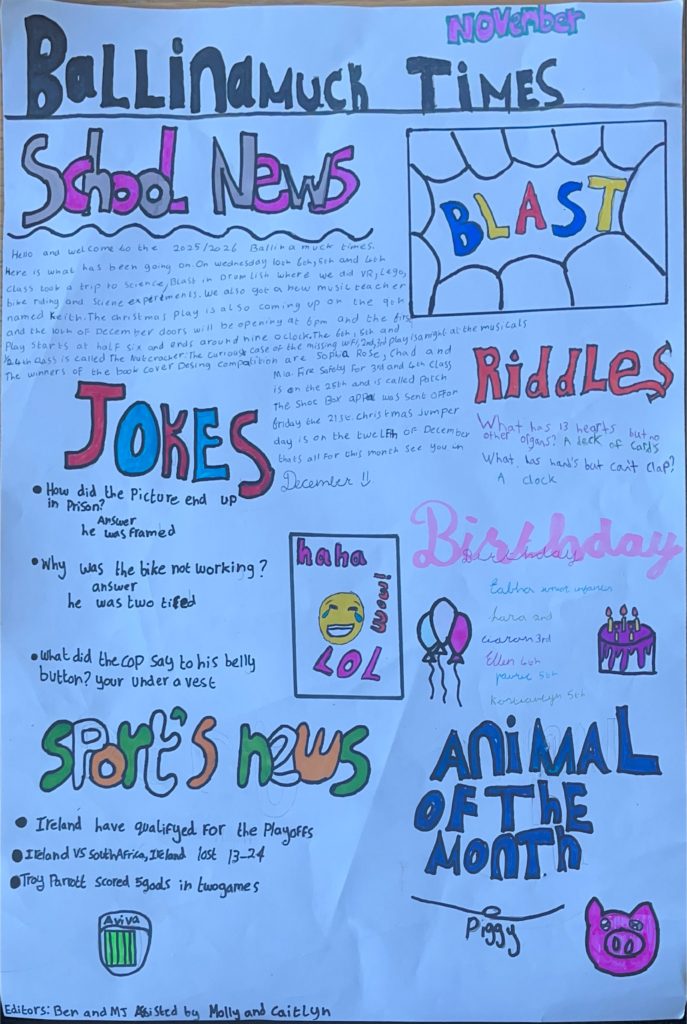 November
Ballinamuck Times
School News
BLAST
Hello and welcome to the 2025/2026 Ballinamuck times.
Here is what has been going on. On wednesday 10th 6th, 5th and 4th
class took a trip to science, Blast in Drumlish where we did VR, Lego,
bike riding and Sciene experements. We also got a new music teacher
named Keith. The christmas play is also coming up on the 9th
and the 10th of December doors will be opening at 6pm and the first
Play starts at half six and ends around nine o clock. The 6th, 5th and
4th class is called The Nutcracker: The Curious case of the missing wifi, 2nd, 3rd play is a night at the musicals
The winners of the book cover Desing compatition are Sophia Rose, Chad and
Mia. Fire Safety For 3rd and 4th class
is on the 25th and is called patch
The Shoe Box appeal was sent off for
friday the 21st. Christmas Jumper
day is on the twelfth of December
thats all for this month see you in
December !!
Riddles
What has 13 hearts but no
other organs? A deck of cards
What has hand's but can't clap?
A clock
JOKES
How did the Picture end up
in Prison?
Answer
he was framed
Why was the bike not working?
answer
he was two tired
What did the COP say to his belly
button? your under a vest
haha
wow!
LOL
Birthday
Birthday
Eabha junior infants
2nd
ciaran 3rd
Ellen 4th
5th
5th
Sport's news
Ireland have qualifyed For the Playoffs
Ireland VS South Africa, Ireland lost 13-24
Troy Parrott scored 5goals in twogames
Aviva
ANIMAL
OF THE
MONTH
Piggy
Editors: Ben and MJ Assisted by Molly and Caitlyn